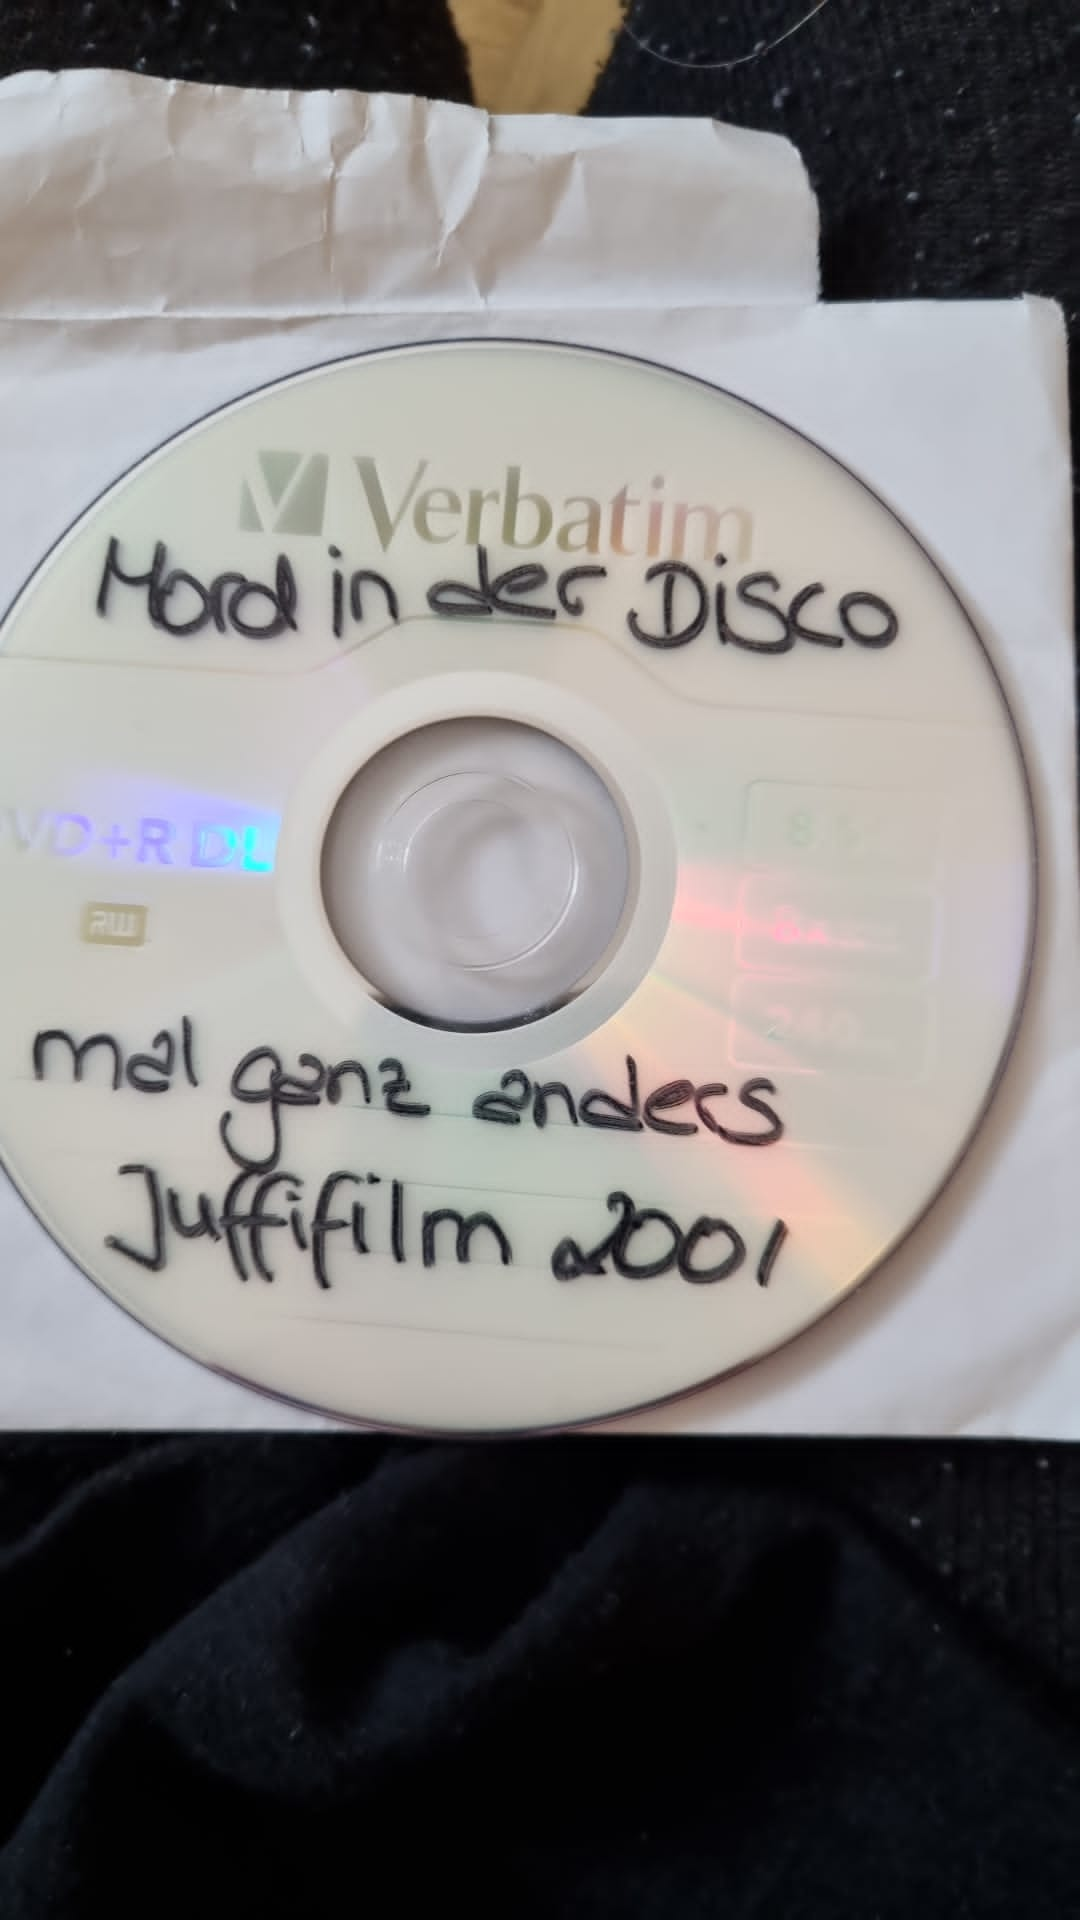 Verbatim
Mord in der Disco
DVD+R DL
RW
mal ganz anders
Juffifilm 2001